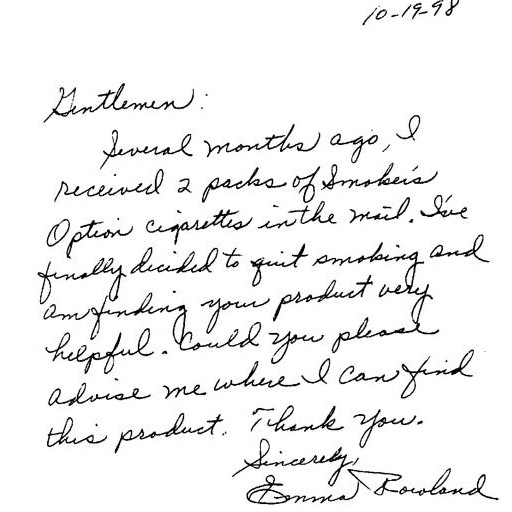 10-19-98
Gentlemen:
Several months ago, I
received 2 packs of Smoker's
Option cigarettes in the mail. I've
finally decided to quit smoking and
am finding your product very
helpful. Could you please
advise me where I can find
this product. Thank you.
Sincerely,
Emma Rowland